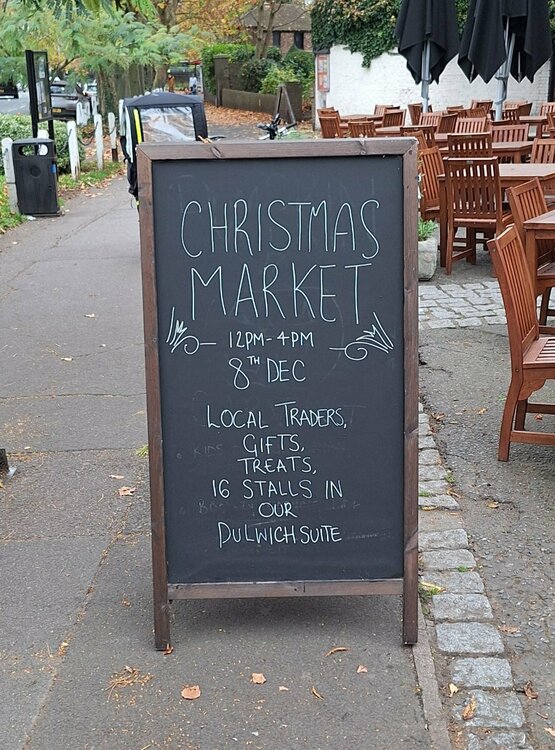 CHRISTMAS
MARKET
12PM-4PM
8TH DEC
LOCAL TRADERS,
GIFTS,
TREATS,
16 STALLS IN
OUR
DULWICH SUITE